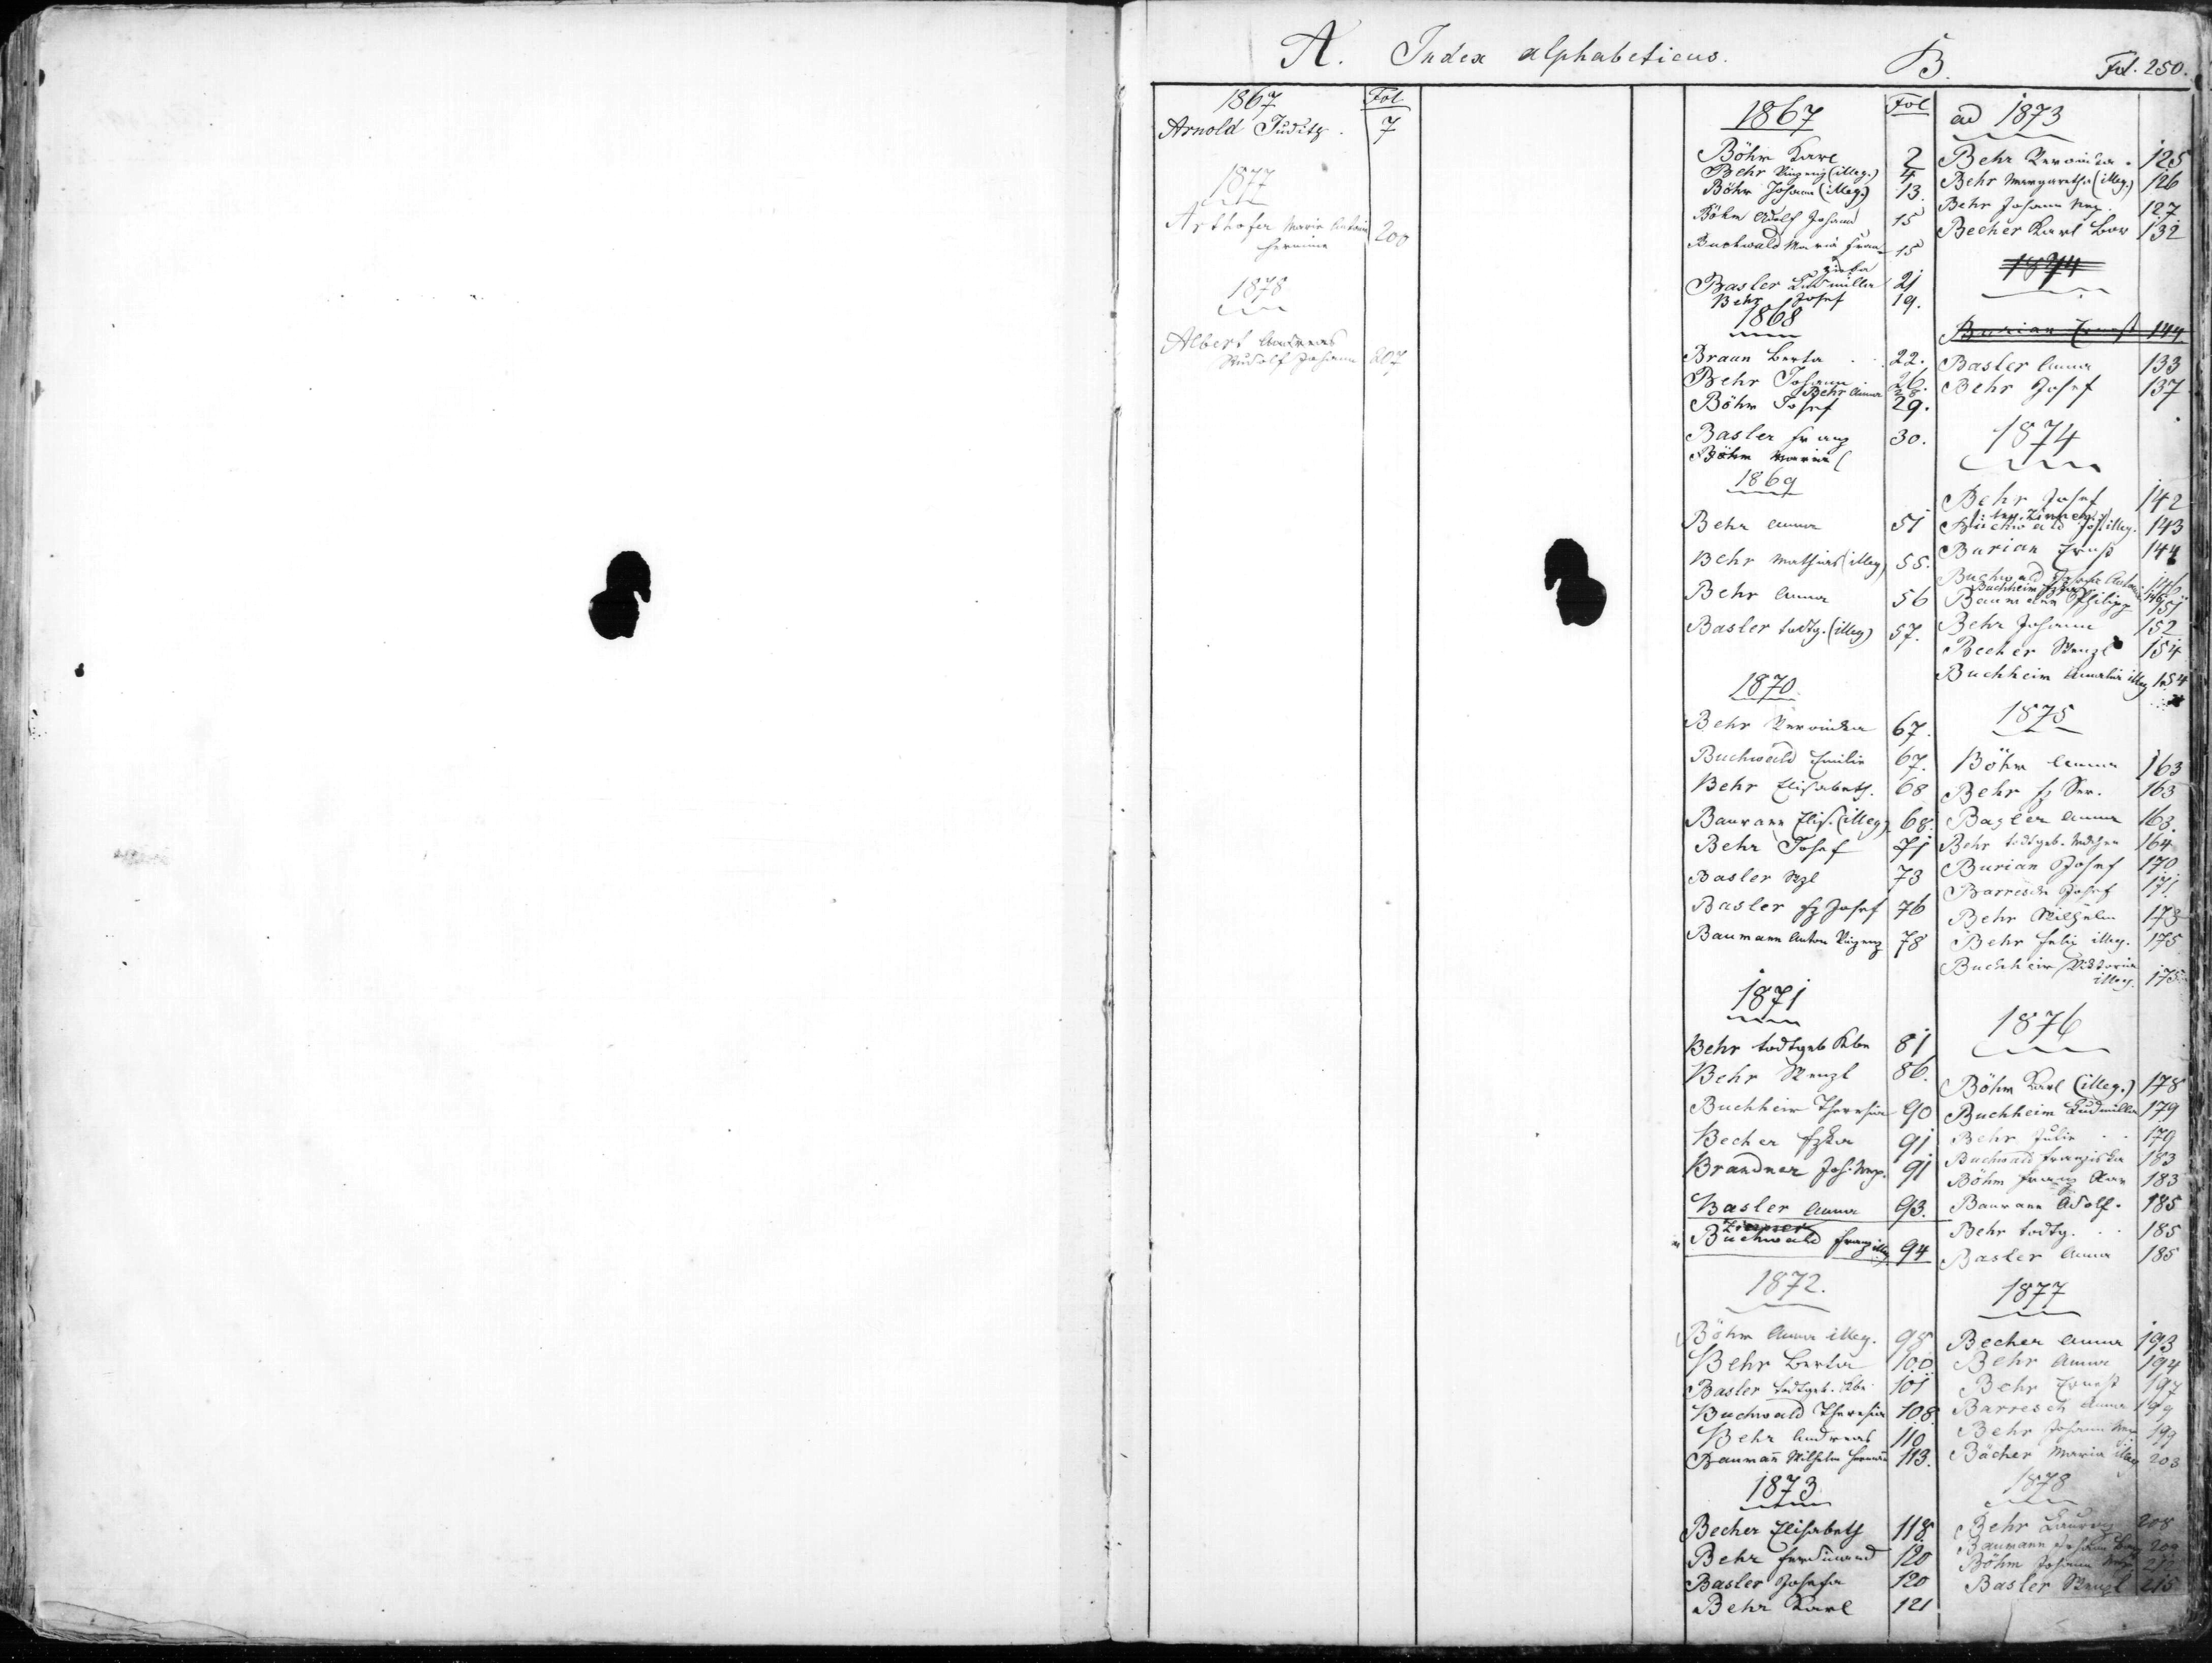 A. Index alphabeticus. B. Fol. 250.
1867 Fol
Arnold Judith. 7
1877
Arthofer Maria Antonia 200
Hermine
1878
Albert Andreas
Rudolf Johann 207
1867 Fol
Böhm Karl 2
Behr Vinzenz (illeg.) 4
Böhm Johann (illeg.) 13.
Böhm Adolf Johann 15
Buchwald Maria Fran- 15
ziska
Basler Ludmilla 21
Behr Josef 19.
1868
Braun Berta . . 22.
Behr Johann . 26.
Behr Anna 28
Böhm Josef 29.
Basler Franz 30.
Böhm Maria
1869
Behr Anna 51
Behr Mathias (illeg) 55.
Behr Anna 56
Basler todtg. (illeg) 57.
1870.
Behr Veronika 67.
Buchwald Emilie 67.
Behr Elisabeth. 68
Baumann Elis. (illeg) 68.
Behr Josef 71
Basler Wzl 73
Basler Fz Josef 76
Baumann Anton Vinzenz 78
1871
Behr todtgeb Kbe 81
Behr Wenzl 86.
Buchheim Theresia 90
Becher Fzka 91
Brandner Joh. Nep. 91
Basler Anna 93.
Buchwald Franz illeg 94
1872.
Böhm Anna illeg. 98
Behr Berta 100
Basler todtgeb. Kbe 101
Buchwald Theresia 108.
Behr Andreas 110
Baumañ Wilhelm Hermañ 113.
1873
Becher Elisabeth 118.
Behr Ferdinand 120
Basler Josefa 120
Behr Karl 121
ad 1873
Behr Veronika . 125
Behr Margaretha (illeg.) 126
Behr Johann Nep. 127
Becher Karl Bor 132
1874
Burian Ernst 144
Basler Anna 133
Behr Josef 137
1874
Behr Josef 142
Buchwald Jos. illeg. 143
Burian Ernst 144
Buchwald Josefa Antonia 146
Buchheim Fzka 149
Baumann Philipp 151
Behr Johann 152
Becher Wenzl 154
Buchheim Amalia illeg 154
1875
Böhm Anna 163
Behr Fz Ser. 163
Basler Anna 163.
Behr todtgeb. Mdchen 164
Burian Josef 170
Barresch Josef 171
Behr Wilhelm 173
Behr Felix illeg. 175
Buchheim Viktoria
illeg. 175
1876
Böhm Karl (illeg.) 178
Buchheim Ludmilla 179
Behr Julie . . 179
Buchwald Franziska 183
Böhm Franz Xav 183
Baumann Adolf. 185
Behr todtg. . . 185
Basler Anna 185
1877
Becher Anna 193
Behr Anna 194
Behr Ernest 197
Barresch Anna 199
Behr Johann Nep 199
Bächer Maria illeg 203
1878
Behr Laurenz 208
Baumann Johann 209
Böhm Johann Nep 212
Basler Wenzl 215